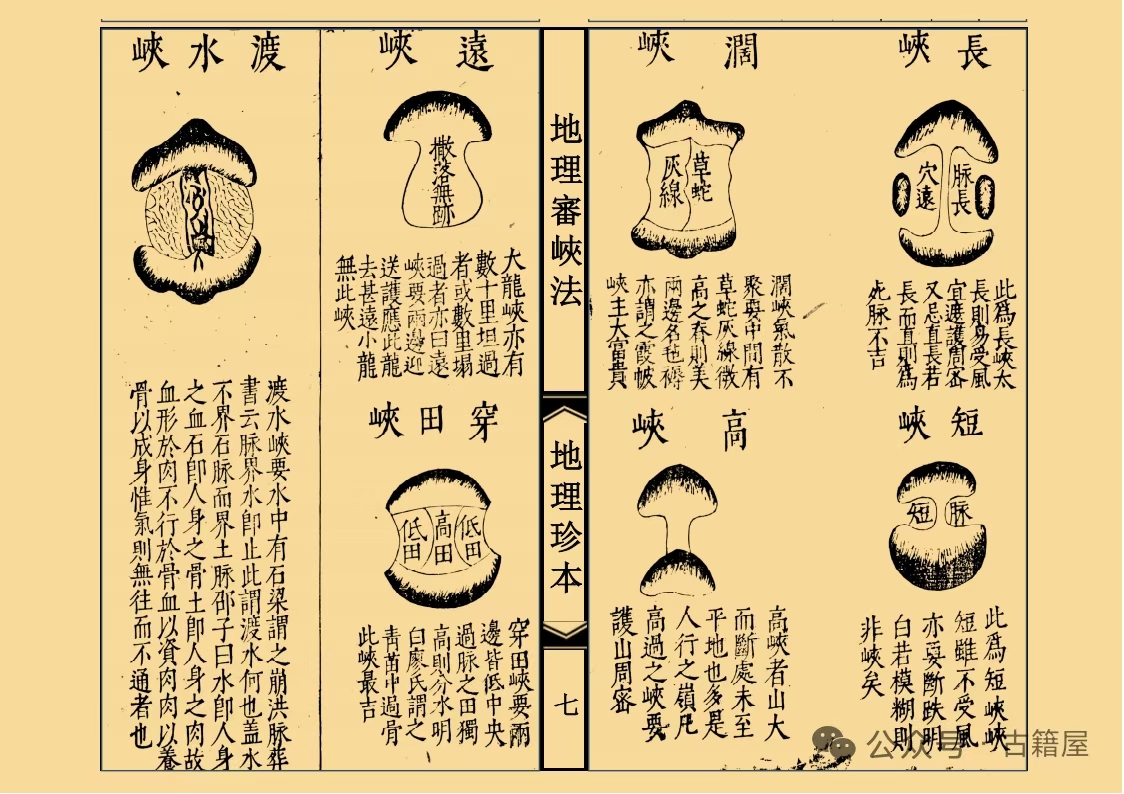 長峽
脉長
穴遠
此爲長峽太
長則易受風
宜遶護周密
又忌直長若
長而直則爲
死脉不吉
短峽
脉
短
此爲短峽峽
短雖不受風
亦要斷跌明
白若模糊則
非峽矣
濶峽
草蛇
灰線
濶峽氣散不
聚要中間有
草蛇灰線微
高之脊則美
兩邊名毡褥
亦謂之霞帔
峽主大富貴
高峽
高峽者山大
而斷處未至
平地也多是
人行之嶺凡
高過之峽要
護山周密
地理審峽法
地理珍本
七
遠峽
撒落無跡
大龍峽亦有
數十里坦過
者或數里塌
過者亦曰遠
峽要兩邊迎
送護應此龍
去甚遠小龍
無此峽
穿田峽
低田
高田
低田
穿田峽要兩
邊皆低中央
過脉之田獨
高則分水明
白廖氏謂之
靑苗中過骨
此峽最吉
渡水峽
渡水峽要水中有石梁謂之崩洪脉葬
書云脉界水卽止此謂渡水何也盖水
不界石脉而界土脉邵子曰水卽人身
之血石卽人身之骨土卽人身之肉故
血形於肉不行於骨血以資肉肉以養
骨以成身惟氣則無往而不通者也
公众号·古籍屋